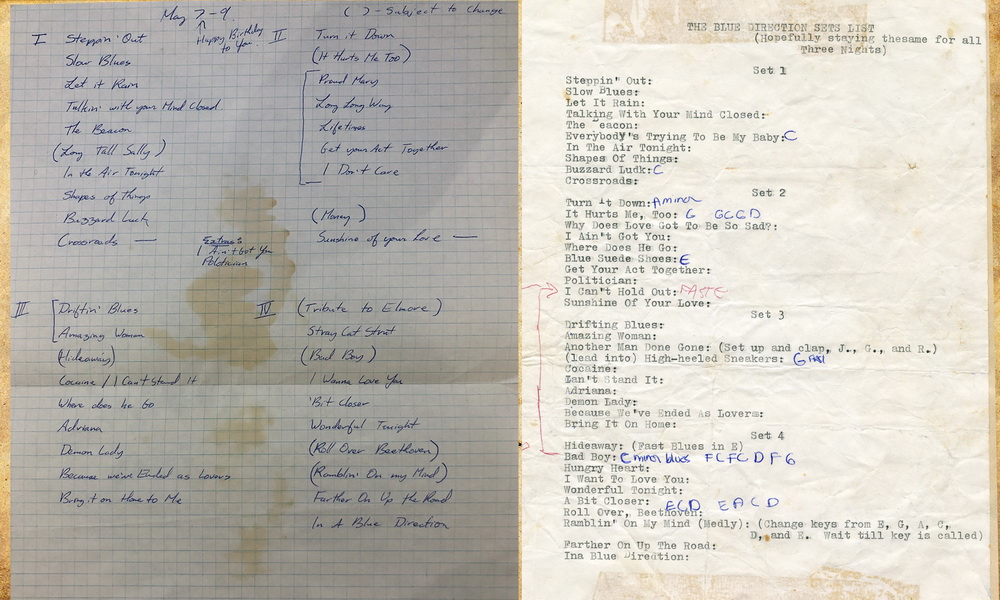 May 7-9
( ) - Subject to Change
Happy Birthday
to You
I
Steppin' Out
Slow Blues
Let it Rain
Talkin' with your Mind Closed
The Beacon
(Long Tall Sally)
In the Air Tonight
Shapes of Things
Buzzard Luck
Crossroads —
Extras
I Ain't Got You
Politician
II
Turn it Down
(It Hurts Me Too)
Proud Mary
Long Long Way
Lifetimes
Get your Act Together
I Don't Care
(Money)
Sunshine of your Love —
III
Driftin' Blues
Amazing Woman
(Hideaway)
Cocaine / I Can't Stand It
Where does he Go
Adriana
Demon Lady
Because we've Ended as Lovers
Bring it on Home to Me
IV
(Tribute to Elmore)
Stray Cat Strut
(Bad Boy)
I Wanna Love You
'Bit Closer
Wonderful Tonight
(Roll Over Beethoven)
(Ramblin' On my Mind)
Farther On Up the Road
In A Blue Direction
THE BLUE DIRECTION SETS LIST
(Hopefully staying thesame for all
Three Nights)
Set 1
Steppin' Out:
Slow Blues:
Let It Rain:
Talking With Your Mind Closed:
The eacon:
Everybody's Trying To Be My Baby: C
In The Air Tonight:
Shapes Of Things:
Buzzard Ludk: C
Crossroads:
Set 2
Turn It Down: Aminor
It Hurts Me, Too: G GCGD
Why Does Love Got To Be So Sad?:
I Ain't Got You:
Where Does He Go:
Blue Suede Shoes: E
Get Your Act Together:
Politician:
I Can't Hold Out: FAST C
Sunshine Of Your Love:
Set 3
Drifting Blues:
Amazing Woman:
Another Man Done Gone: (Set up and clap, J., G., and R.)
(lead into) High-heeled Sneakers: G FAST
Cocaine:
Ean't Stand It:
Adriana:
Demon Lady:
Because We've Ended As Loverm:
Bring It On Home:
Set 4
Hideaway: (Fast Blues in E)
Bad Boy: C minor blues FCFCDFG
Hungry Heart:
I Want To Love You:
Wonderful Tonight:
A Bit Closer: ECD EACD
Roll Over, Beethoven:
Ramblin' On My Mind (Medly): (Change keys from E, G, A, C,
D, and E. Wait till key is called)
Farther On Up The Road:
Ina Blue Diredtion: